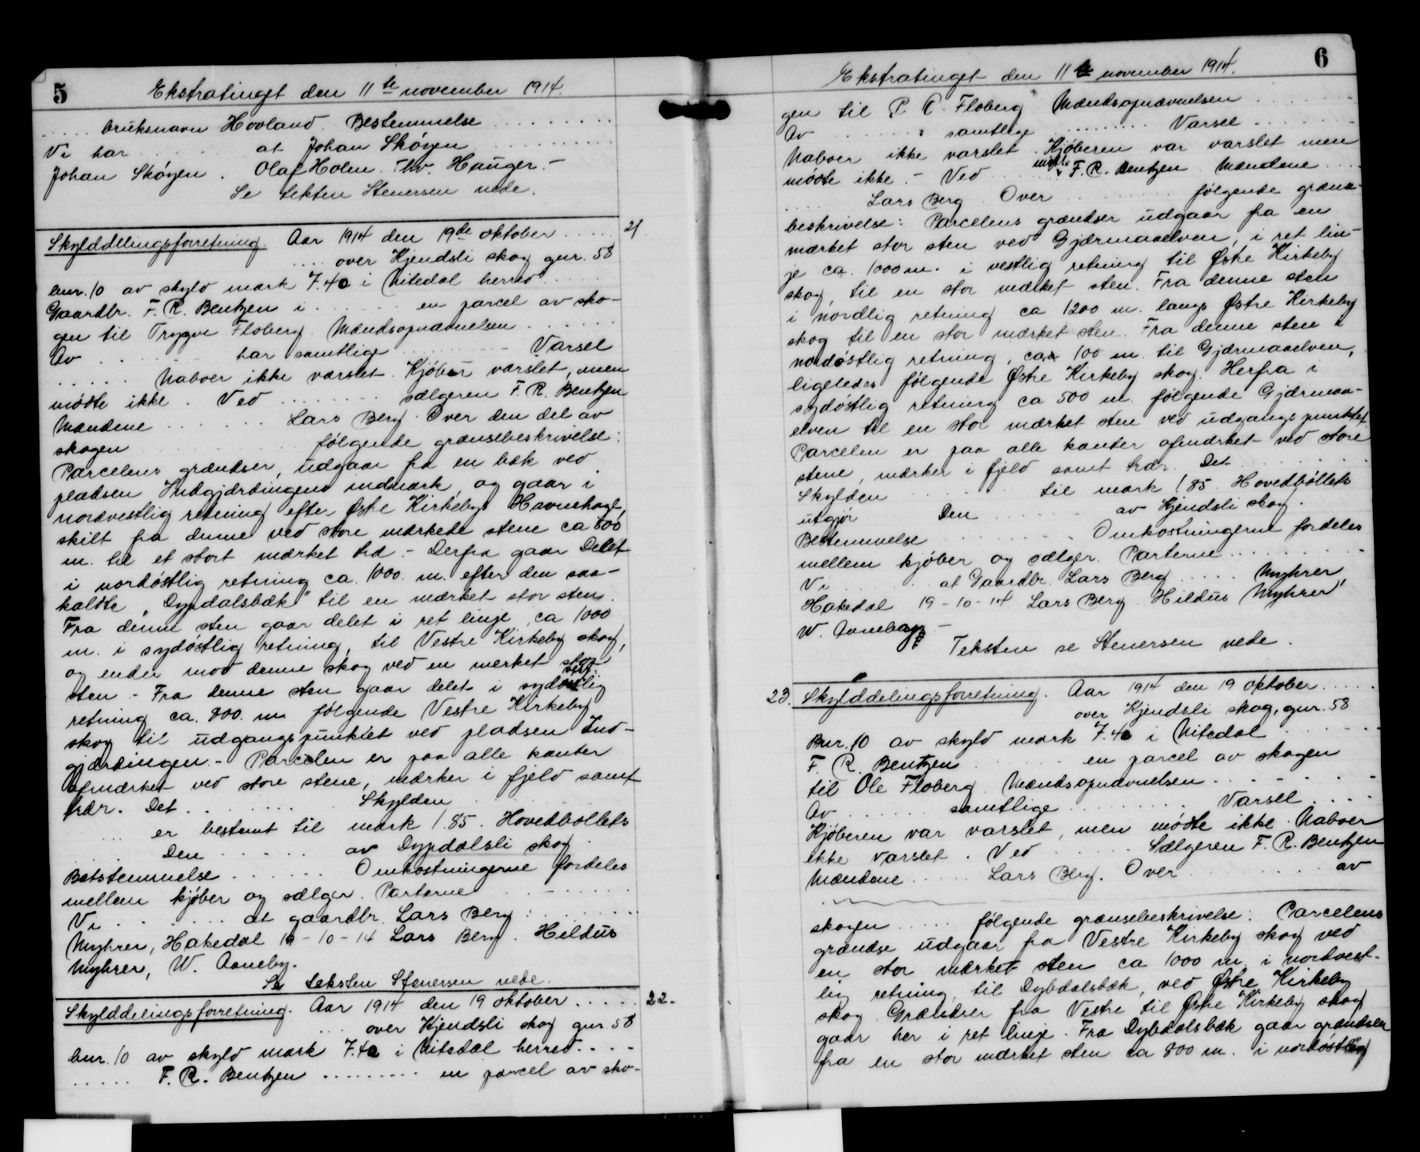 5
Ekstratinget den 11te november 1914.
.... bruksnavn Hovland Bestemmelse ..........
Vi har ..... at Johan Skøyen ..........
Johan Skøyen . Olaf Holm. Thv. Hauger. -
Se teksten Stenersen nede.
Skylddelingsforretning. Aar 1914 den 19de oktober ..... 21.
.... over Kjendsli skog gnr. 58
bnr. 10 av skyld mark 7.40 i Nitedal herred ...
Gaardbr. F. R. Bentzen i ....... en parcel av sko-
gen til Trygve Floberg. Mændsopnævnelsen ......
Av ........ har samtlige ........ Varsel
..... Naboer ikke varslet. Kjøber varslet, men
mødte ikke. Ved ........ sælgeren F. R. Bentzen
Mændene ...... Lars Berg. Over den del av
skogen ........ følgende grænsebeskrivelse:
Parcelens grændser, udgaar fra en bæk ved
pladsen Indgjærdingens indmark og gaar i
nordvestlig retning efter Østre Kirkebys Havnehage,
skilt fra denne ved store mærkede stene ca 800
m. til et stort mærket træ. - Derfra gaar Delet
i nordøstlig retning ca. 1000. m. efter den saa-
kaldte „Dypdalsbæk" til en mærket stor sten.
Fra denne sten gaar delet i ret linje, ca 1000
m. i sydøstlig retning, til Vestre Kirkeby skog,
og ender mod denne skog ved en merket stor
sten. - Fra denne sten gaar delet i sydvestlig
retning ca. 800. m følgende Vestre Kirkeby
skog til udgangspunktet ved pladsen Ind-
gjærdingen. - Parcelen er paa alle kanter
afmærket ved store stene, mærker i fjeld samt
trær. Det ........ Skylden ........
... er bestemt til mark 1.85. Hovedbøllets
... Den ...... av Dypdalsli skog.
Betstemmelse ....... Omkostningerne fordeles
mellem kjøber og sælger. Parterne ........
Vi ........ at gaardbr. Lars Berg: ......
Myhrer, Hakedal 19-10-14 Lars Berg. Hildus
Myhrer, W. Aaneby.
Se teksten Stenersen nede.
Skylddelingsforretning. Aar 1914 den 19 oktober ..... 22.
... over Kjendsli skog gnr. 58
bnr. 10 av skyld mark 7.40 i Nitedal herred. ...
..... F. R. Bentzen ........ en parcel av sko-
6
Ekstratinget den 11te november 1914.
gen til P. C. Floberg Mændsopnævnelsen ........
Av ........ samtlige ........ Varsel ......
Naboer ikke varslet. Kjøberen var varslet men
mødte ikke. - Ved ..... F. R. Bentzen Mændene ....
..... Lars Berg. Over ........ følgende grænse-
beskrivelse: Parcelens grændser udgaar fra en
mærket stor sten ved Gjærmaaelven, i ret lin-
je ca. 1000 m. i vestlig retning til Østre Kirkeby
skog, til en stor mærket sten. Fra denne sten
i nordlig retning ca 1200 m. langs Østre Kirkeby
skog til en stor mærket sten. Fra denne sten i
nordøstlig retning, ca 100 m. til Gjærmaaelven,
ligeledes følgende Østre Kirkeby skog. Herfra i
sydøstlig retning ca 500 m. følgende Gjærmaa-
elven til en stor mærket sten ved udgangspunktet
Parcelen er paa alle kanter afmærket ved store
stene, mærker i fjeld samt trær. Det ........
Skylden ........ til mark 1.85 Hovedbøllets
utgjør ..... Den ........ av Kjendsli skog.
Bestemmelse ........ Omkostningerne fordeles
mellem kjøber og sælger. Parterne ........
Vi ...... at Gaardbr. Lars Berg ..... Myhrer,
Hakedal 19-10-14 Lars Berg. Hildus Myhrer,
W. Aaneby. -
Teksten se Stenersen nede.
23. Skylddelingsforretning. Aar 1914 den 19 oktober .....
over Kjendsli skog, gnr. 58
Bnr. 10 av skyld mark 7.40 i Nitedal ......
F. R. Bentzen ...... en parcel av skogen
til Ole Floberg Mændsopnævnelsen ........
Av ........ samtlige ........ Varsel ....
Kjøberen var varslet, men mødte ikke. Naboer
ikke varslet. Ved ...... Sælgeren F. R. Bentzen
Mændene ..... Lars Berg. Over ........ av
skogen .... følgende grænsebeskrivelse: Parcelens
grændse udgaar fra Vestre Kirkeby skog ved
en stor mærket sten ca 1000 m. i nordvest-
lig retning til Dybdalsbæk, ved Østre Kirkeby
skog. Grændser fra Vestre til Østre Kirkeby skog
gaar her i ret linje. Fra Dybdalsbæk gaar grændsen
fra en stor mærket sten ca 800 m. i nordøstlig